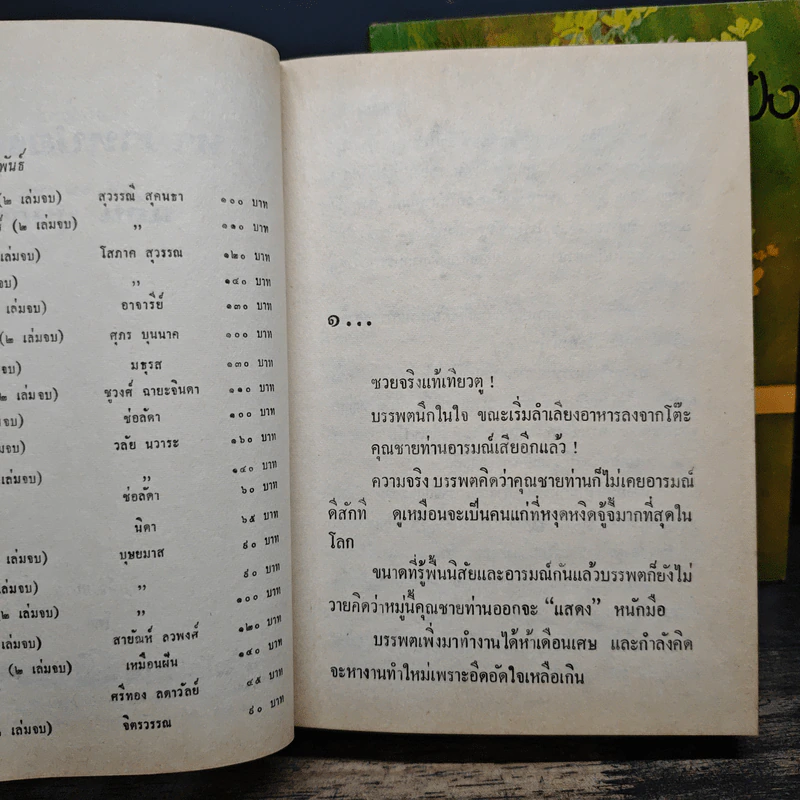 พันธ์
(๒ เล่มจบ) สุวรรณี สุคนธา ๑๐๐ บาท
์ (๒ เล่มจบ) ,, ๑๑๐ บาท
เล่มจบ) โสภาค สุวรรณ ๑๒๐ บาท
จบ) ,, ๑๔๐ บาท
เล่มจบ) อาจารีย์ ๑๓๐ บาท
(๒ เล่มจบ) ศุภร บุนนาค ๑๐๐ บาท
จบ) มธุรส ๑๓๐ บาท
๒ เล่มจบ) ชูวงศ์ ฉายะจินดา ๑๑๐ บาท
จบ) ช่อลัดา ๑๐๐ บาท
เล่มจบ) วลัย นวาระ ๑๖๐ บาท
,, ๑๔๐ บาท
ช่อลัดา ๖๐ บาท
นิดา ๖๕ บาท
เล่มจบ) บุษยมาส ๙๐ บาท
จบ) ,, ๙๐ บาท
๒ เล่มจบ) ,, ๑๐๐ บาท
เล่มจบ) สายัณห์ ลวพงศ์ ๑๒๐ บาท
(๒ เล่มจบ) เหมือนฝัน ๑๔๐ บาท
ศรีทอง ลดาวัลย์ ๔๕ บาท
เล่มจบ) จิตรวรรณ ๙๐ บาท
๑...
ซวยจริงแท้เทียวตู !
บรรพตนึกในใจ ขณะเริ่มลำเลียงอาหารลงจากโต๊ะ
คุณชายท่านอารมณ์เสียอีกแล้ว !
ความจริง บรรพตคิดว่าคุณชายท่านก็ไม่เคยอารมณ์
ดีสักที ดูเหมือนจะเป็นคนแก่ที่หงุดหงิดจู้จี้มากที่สุดใน
โลก
ขนาดที่รู้พื้นนิสัยและอารมณ์กันแล้วบรรพตก็ยังไม่
วายคิดว่าหมู่นี้คุณชายท่านออกจะ “แสดง” หนักมือ
บรรพตเพิ่งมาทำงานได้ห้าเดือนเศษ และกำลังคิด
จะหางานทำใหม่เพราะอึดอัดใจเหลือเกิน